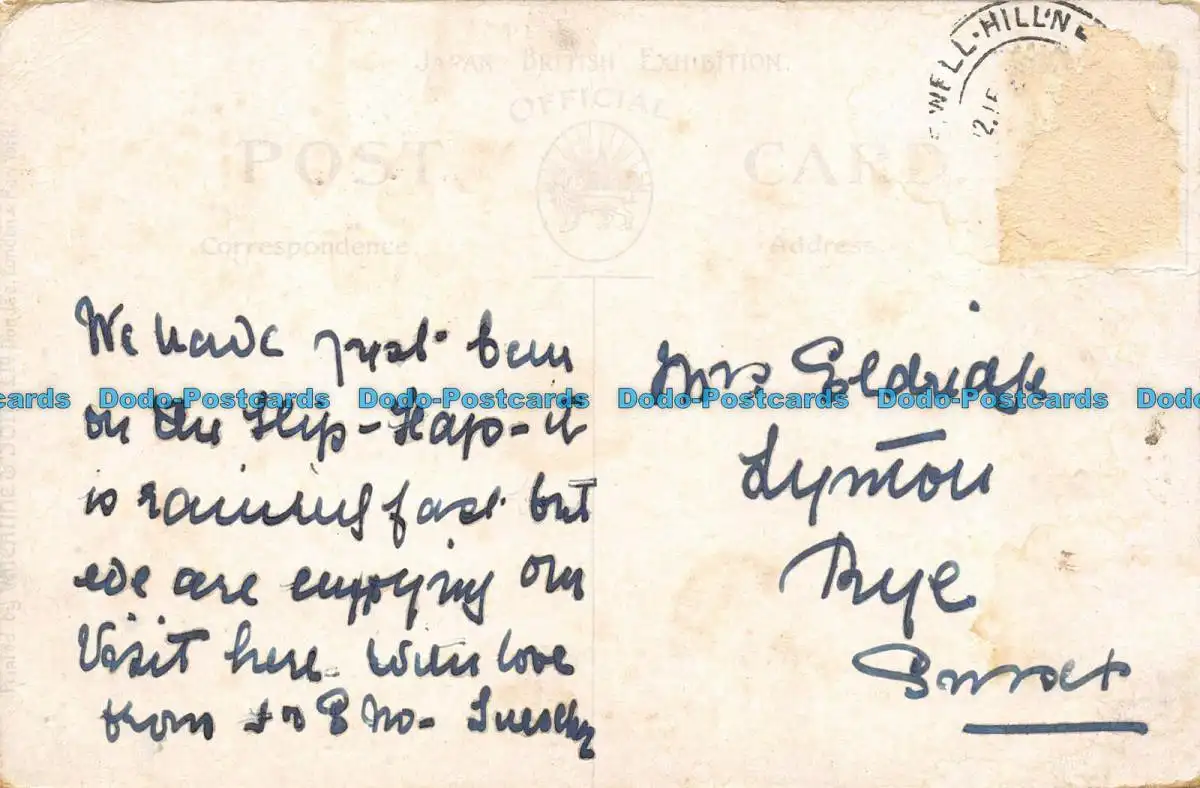 WELL·HILL·N
2.15
JAPAN BRITISH EXHIBITION.
OFFICIAL
POST CARD
Correspondence. Address.
We have just been
on the Flip-Flap-it
is raining fast but
we are enjoying our
Visit here With love
from
Tuesday
Mrs Eldridge
Lynton
Rye
Sussex
Dodo-Postcards Dodo-Postcards Dodo-Postcards Dodo-Postcards Dodo-Postcards